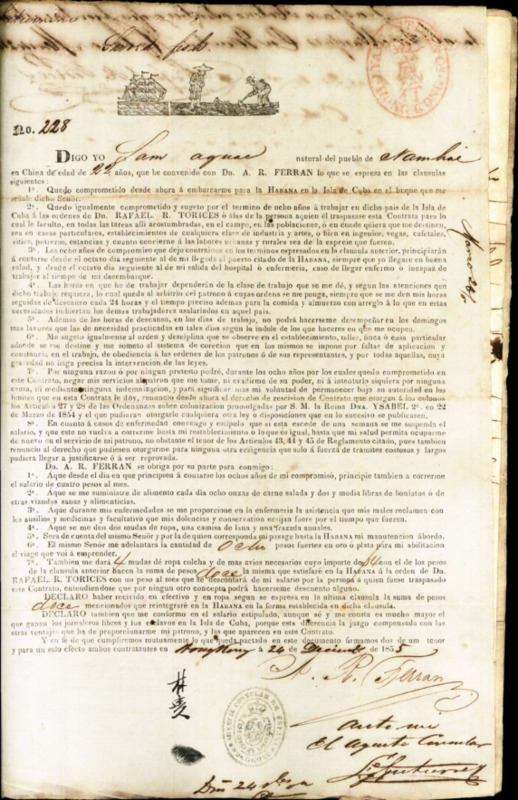 No. 228
DIGO YO Sam aguac natural del pueblo de Namhai
en China de edad de 22 años, que he convenido con Dn. A. R. FERRAN lo que se espresa en las clausulas
siguientes:
1ª. Quedo comprometido desde ahora á embarcarme para la HABANA en la Isla de Cuba en el buque que me
señale dicho Señor.
2ª. Quedo igualmente comprometido y sugeto por el termino de ocho años á trabajar en dicho pais de la Isla de
Cuba á las ordenes de Dn. RAFAEL. R. TORICES ó álas de la persona aquien el traspasase esta Contrata para lo
cual le faculto, en todas las tàreas alli acostumbradas, en el campo, en las poblaciones, ó en donde quiera que me destinen,
sea en casas particulares, establecimientos de cualquiera clase de industria y artes, ó bien en ingenios, vegas, cafetales,
sitios, potreros, estancias y cuanto concierne á las labores urbanas y rurales sea de la especie que fueren.
3ª. Los ocho años de compromiso que dejo contraidos en los terminos expresados en la clausula anterior, principiarán
á contarse desde el octavo dia siguiente al de mi llegada al puerto citado de la HABANA, siempre que yo llegare en buena
salud, y desde el octavo dia siguiente al de mi salida del hospital ó enfermeria, caso de llegar enfermo ó incapaz de
trabajar al tiempo de mi desembarque.
4ª. Las horas en que he de trabajar dependerán de la clase de trabajo que se me dé, y segun las atenciones que
dicho trabajo requiera, lo cual queda al arbitrio del patrono á cuyas ordenes se me ponga, siempre que se me den mis horas
seguidas de descanso cada 24 horas y el tiempo preciso ademas para la comida y almuerzo con arreglo á lo que en estas
necesidades invierten los demas trabajadores asalariados en aquel pais.
5ª. Ademas de las horas de descanso, en los dias de trabajo, no podrá hacerseme desempeñar en los domingos
mas lavores que las de necesidad practicadas en tales dias segun la indole de los que haceres en que me ocupen.
6ª. Me sugeto igualmente al orden y desciplina que se observe en el establecimiento, taller, finca ó casa particular
adonde se me destine y me someto al sistema de correcion que en los mismos se impone por faltas de aplicacion y
constancia, en el trabajo, de obediencia á las ordenes de los patronos ó de sus representantes, y por todas aquellas, cuya
gravedad no haga precisa la intervencion de las leyes.
7ª. Por ninguna razon ó por ningun pretesto podré, durante los ocho años por los cuales quedo comprometido en
este Contrato, negar mis servicios al patron que me tome, ni evadirme de su poder, ni á intentarlo siquiera por ninguna
causa, ni mediante ninguna indemnizacion, y para significar mas mi voluntad de permanecer bajo su autoridad en los
limites que en esta Contrata le doy, renuncio desde ahora al derecho de rescision de Contrato que otorgan á los colonos
los Articulos 27 y 28 de las Ordenanzas sobre colonizacion promulgadas por S. M. la Reina Dña. YSABEL 2ª. en 22
de Marzo de 1854 y el que pudieran otorgarle cualquiera otra ley ó disposiciones que en lo succesivo se publicasen.
8ª. En cuanto á casos de enfermedad convengo y estipulo que si esta escede de una semana se me suspenda el
salario, y que este no vuelva á correrme hasta mi restablecimiento ó lo que es igual, hasta que mi salud permita ocuparme
de nuevo en el servicio de mi patrono, no obstante el tenor de los Articulos 43, 44 y 45 de Reglamento citado, pues tambien
renuncio al derecho que pudiesen otorgarme para ninguna otra exigencia que solo á fuerza de tramites costosos y largos
pudiera llegar á justificarse ó á ser reprovada.
Dn. A. R. FERRAN se obliga por su parte para conmigo:
1ª. Aque desde el dia en que principien á contarse los ochos años de mi compromiso, principie tambien a correrme
el salario de cuatro pesos al mes.
2ª. Aque se me suministre de alimento cada dia ocho onzas de carne salada y dos y media libras de boniatos ó de
otras viandas sanas y alimenticias.
3ª. Aque durante mis enfermedades se me proporcione en la enfermeria la asistencia que mis males reclamen con
los ausilios y medicinas y facultativo que mis dolencias y conservacion exijan fuere por el tiempo que fueren.
4ª. Aque se me den dos mudas de ropa, una camisa de lana y una frazada anuales.
5ª. Será de cuenta del mismo Señor y por la de quien corresponda mi pasage hasta la HABANA mi manutencion ábordo.
6ª. El mismo Señor me adelantará la cantidad de Ocho pesos fuertes en oro ó plata para mi abilitacion
al viage que voi á emprender.
7ª. Tambien me dará 4 mudas de ropa colcha y de mas avios necesarios cuyo importe de $4 con el de los pesos
de la clausula anterior hacen la suma de pesos doce la misma que satisfaré en la HABANA á la órden de Dn.
RAFAEL. R. TORICES con un peso al mes que se descontará de mi salario por la persona á quien fuese traspasado
este Contrato, entendiendose que por ningun otro concepto podrá hacérseme descuento alguno.
DECLARO haber recivido en efectivo y en ropa segun se expresa en la ultima clausula la suma de pesos
doce mencionados que reintegraré en la HABANA en la forma establecida en dicha clausula.
DECLARO tambien que me conformo en el salario estipulado, aunque sé y me consta es mucho mayor el
que ganan los jornaleros libres y los esclavos en la Isla de Cuba, porque esta diferencia la juzgo compensada con las
otras ventajas que ha de proporcionarme mi patrono, y las que aparecen en este Contrato.
Y en fé de que cumpliremos mutuamente lo que queda pactado en este documento firmamos dos de un tenor
y para un solo efecto ambos contratantes en Hong Kong á 24 de Diciembre de 1855
A. R. Ferran
林
Ante mi
El Agente Consular